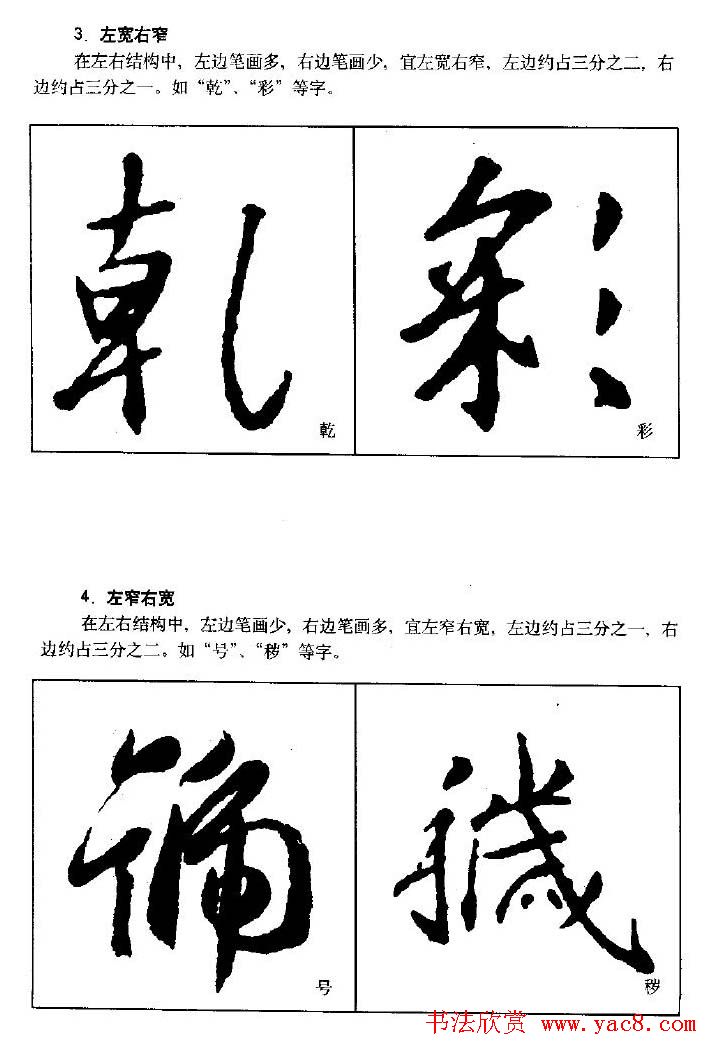 3. 左宽右窄
在左右结构中，左边笔画多，右边笔画少，宜左宽右窄，左边约占三分之二，右
边约占三分之一。如“乾”、“彩”等字。
乾 彩
乾 彩
4. 左窄右宽
在左右结构中，左边笔画少，右边笔画多，宜左窄右宽，左边约占三分之一，右
边约占三分之二。如“号”、“秽”等字。
號 穢
号 秽
书法欣赏 www.yac8.com